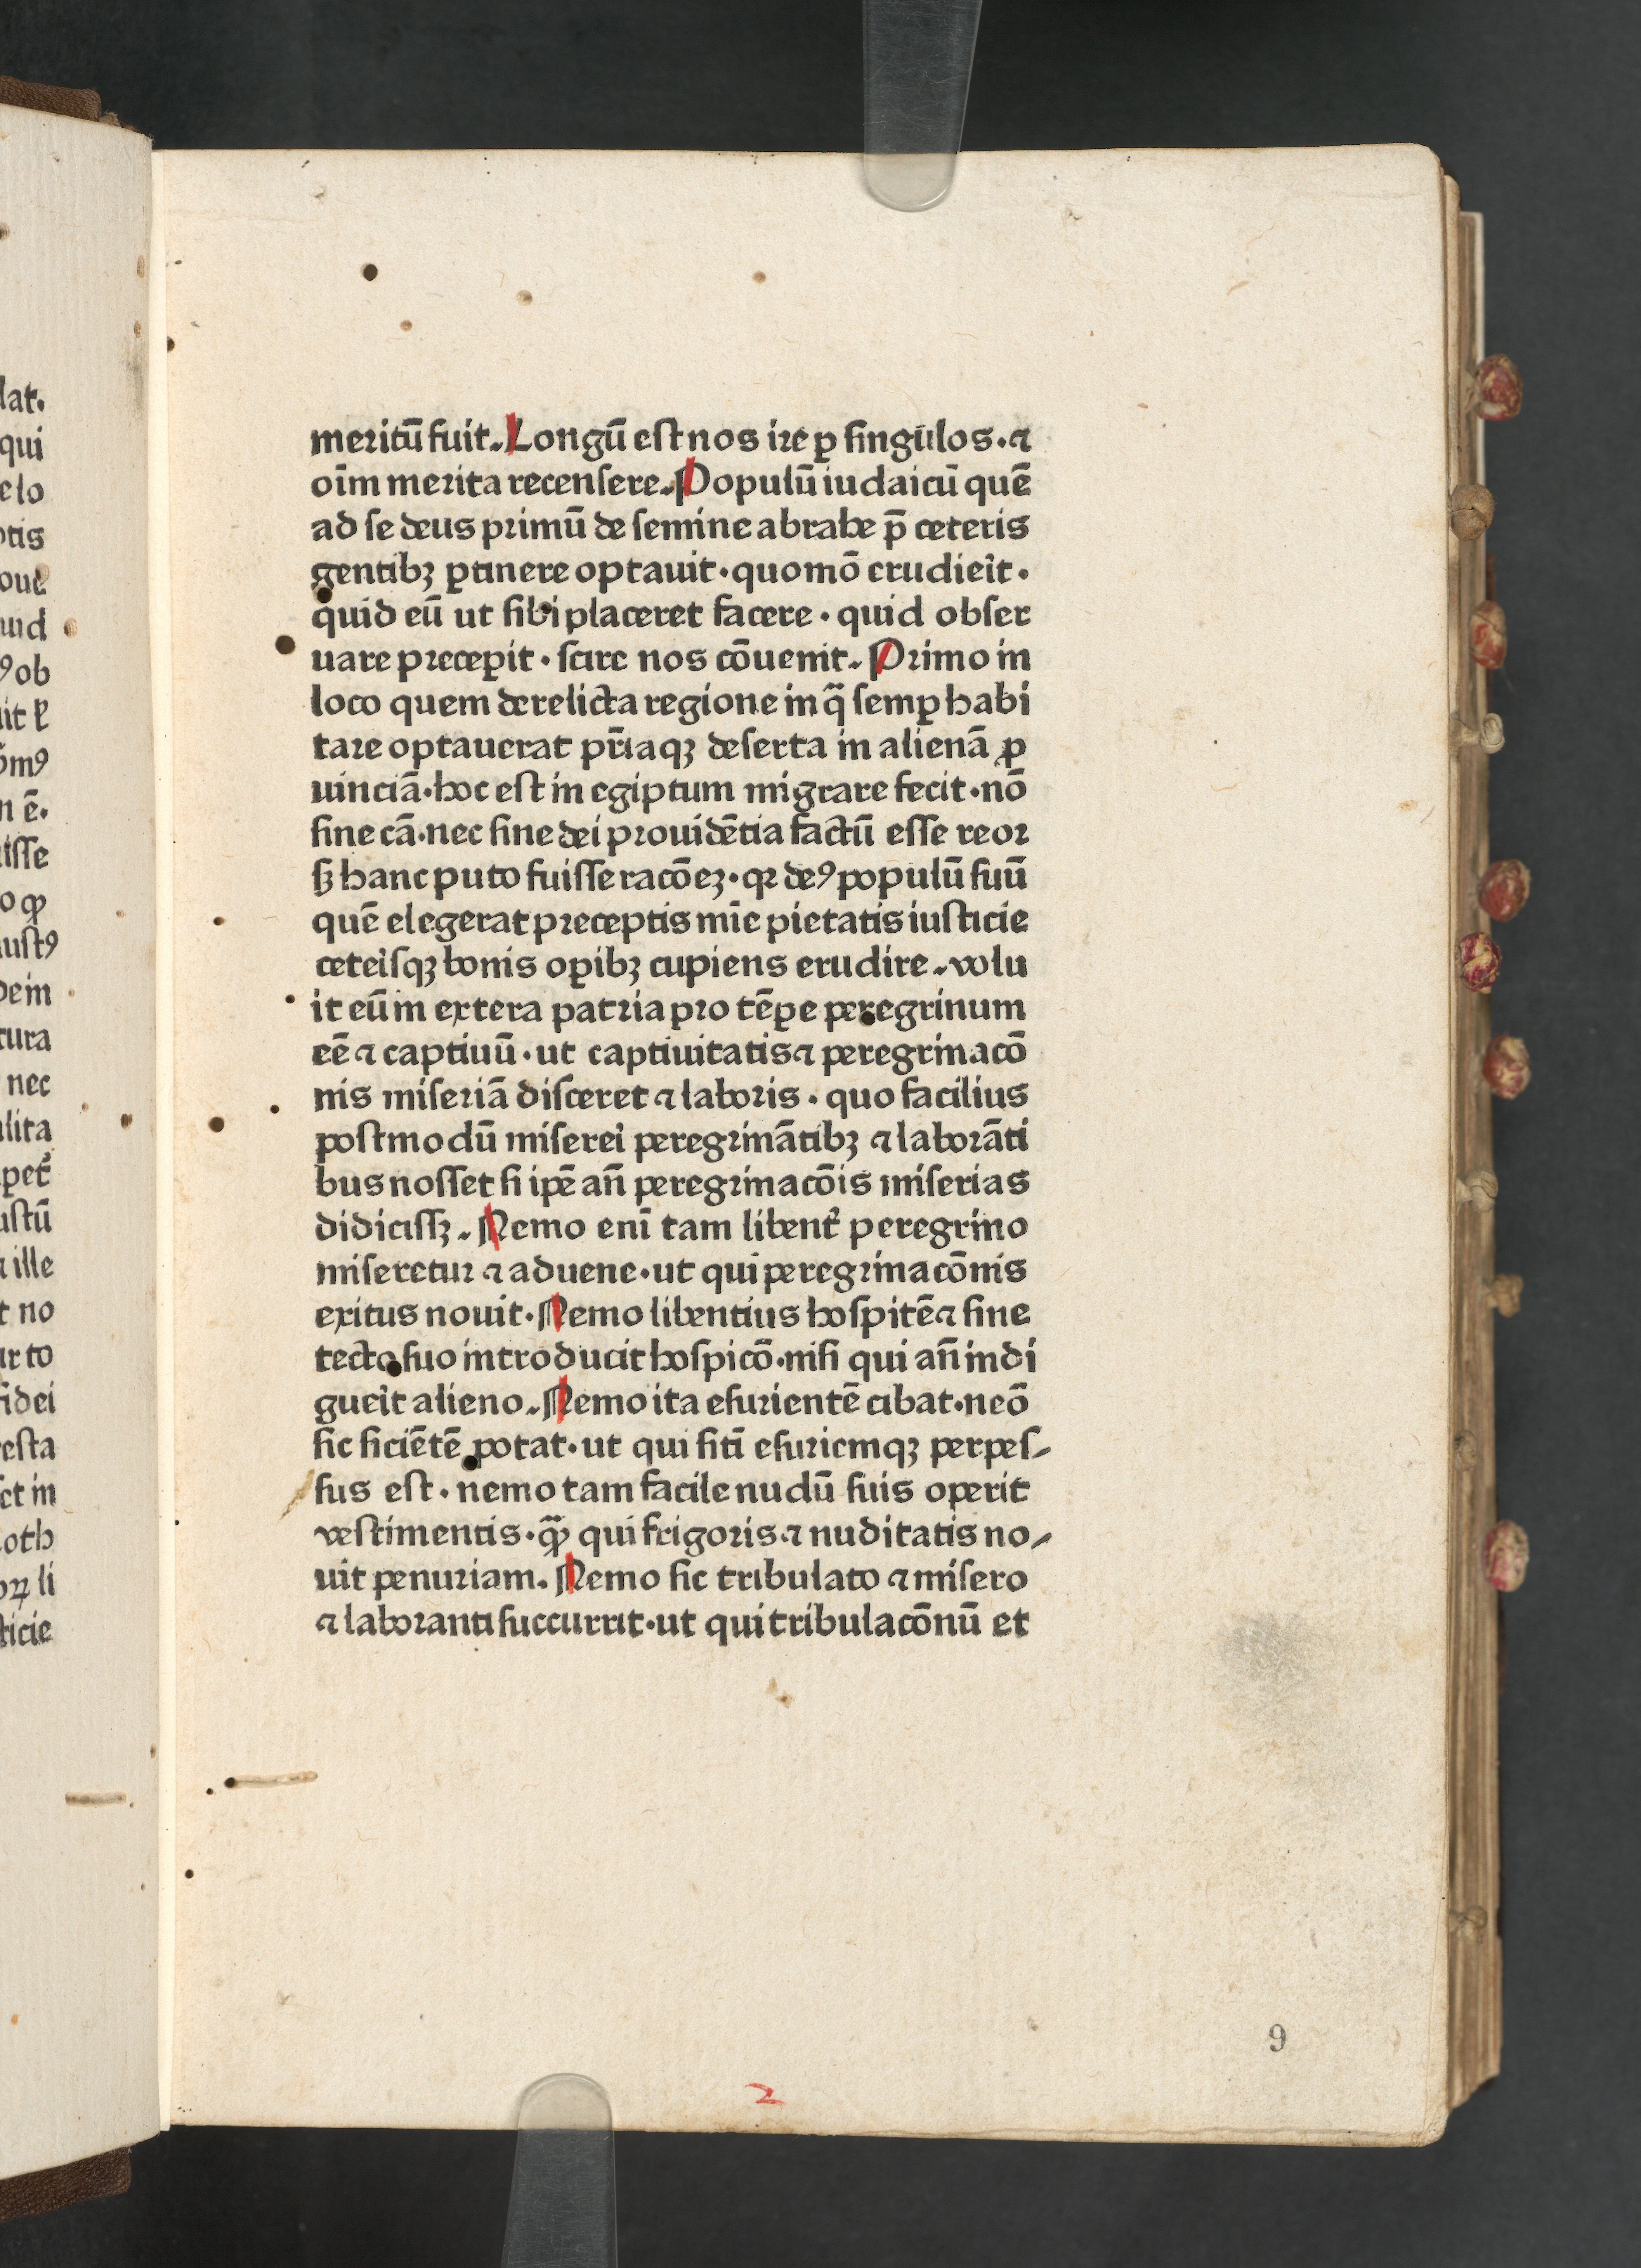 meritū fuit. Longū est nos ire ꝑ singulos. ⁊
oīm merita recensere. Populū iudaicū quē
ad se deus primū de semine abrahe p̄ ceteris
gentibꝫ ꝑtinere optauit. quomō erudieīt.
quid eū ut sibi placeret facere. quid obser
uare precepit. scire nos cōuenit. Primo in
loco quem derelicta regione in q̄ semꝑ habi
tare optauerat pr̄iaqꝫ deserta in alienā ꝓ
uinciā. hoc est in egiptum migrare fecit. nō
sine cā. nec sine dei prouidētia factū esse reor
sꝫ hanc puto fuisse racōeꝫ. qꝛ deꝰ populū suū
quē elegerat preceptis mīe pietatis iusticie
ceteīsqꝫ bonis oꝑibꝫ cupiens erudire. volu
it eū in extera patria pro tēꝑe peregrinum
eē ⁊ captiuū. ut captiuitatis ⁊ peregrinacō
nis miseriā disceret ⁊ laboris. quo facilius
postmodū misereī peregrinātibꝫ ⁊ laborāti
bus nosset si ipē an̄ peregrinacōis miserias
didicissꝫ. Nemo enī tam libent̄ peregrino
miseretur ⁊ aduene. ut qui peregrinacōnis
exitus nouit. Nemo libentius hospitē ⁊ sine
tecto suo introducit hospicō. nisi qui an̄ indi
gueīt alieno. Nemo ita esurientē cibat. neō
sic siciētē potat. ut qui sitī esuriemqꝫ perpes-
sus est. nemo tam facile nudū suis operit
vestimentis. qꝫ̄ qui frigoris ⁊ nuditatis no-
uit penuriam. Nemo sic tribulato ⁊ misero
⁊ laboranti succurrit. ut qui tribulacōnū et
9
2
lat.
qui
elo
ptis
oue
uid
ꝰob
it ꝑ
ōmꝰ
n ē.
isse
o ꝙ
iustꝰ
dem
tura
nec
lita
ꝑet̄
ustū
⁊ ille
t no
ur to
fidei
esta
ct in
oth
oꝝ li
ticie